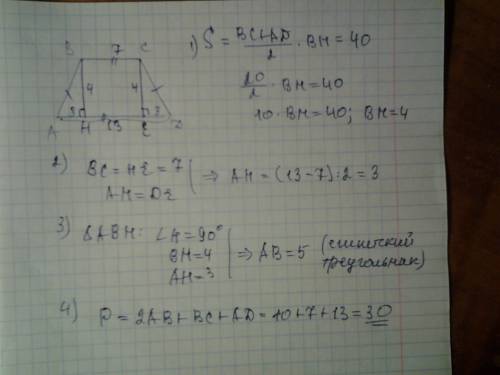 B 7 C
4 4
A 3 H 13 E 3 D
1) S = BC+AD/2 · BH = 40
20/2 · BH = 40
10 · BH = 40; BH = 4
2) BC = HE = 7
AH = DE
⇒ AH = (13-7):2 = 3
3) ΔABH: ∠H = 90°
BH = 4
AH = 3
⇒ AB = 5 (египетский
треугольник)
4) P = 2AB + BC + AD = 10 + 7 + 13 = 30